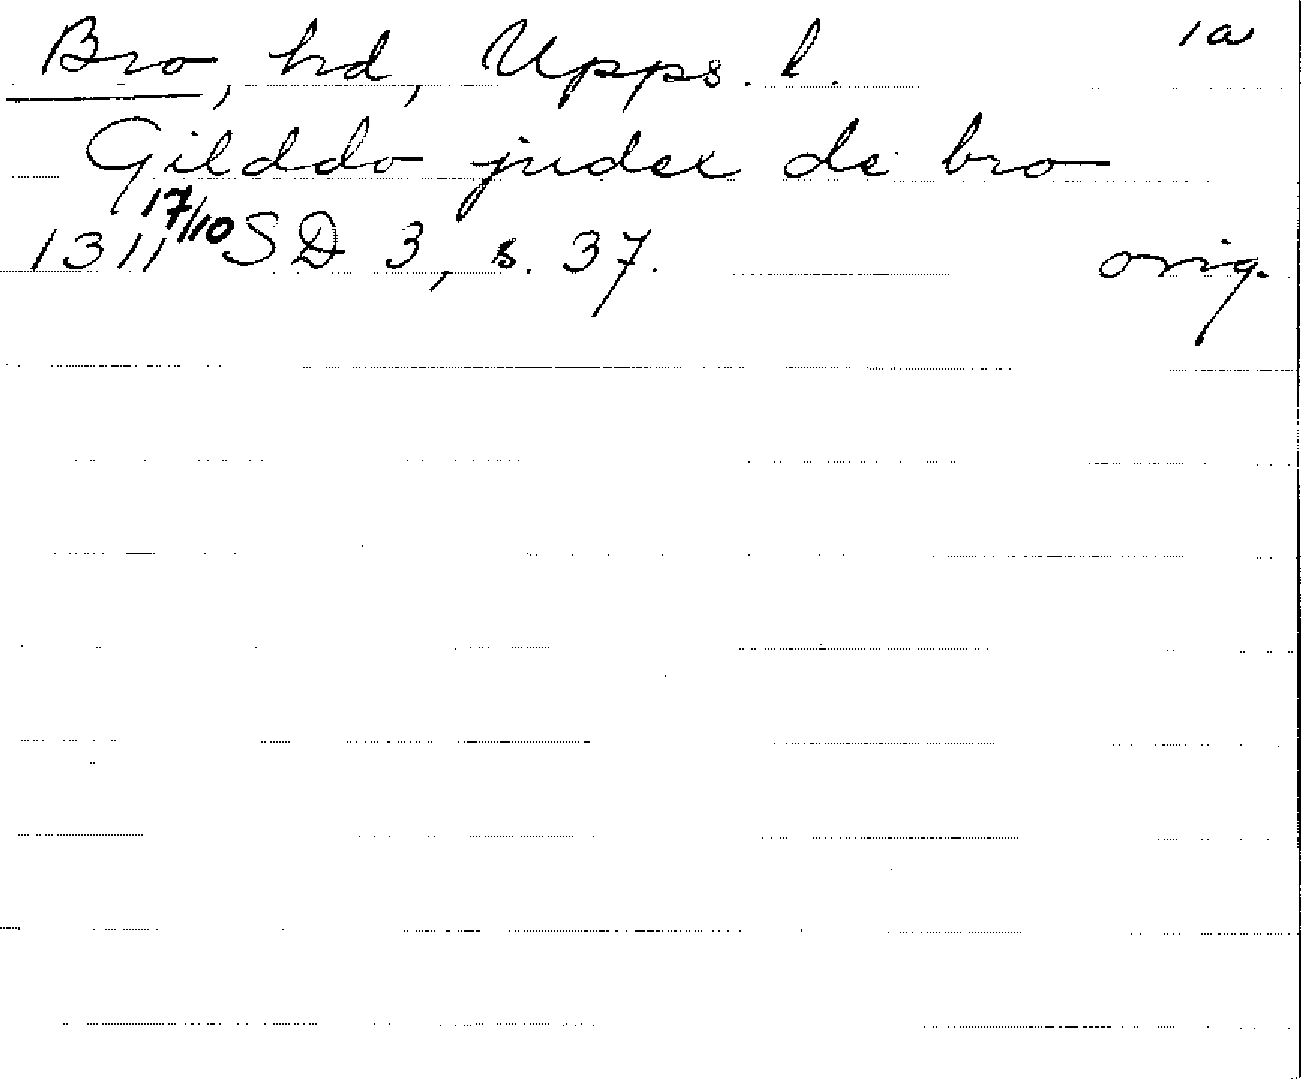 Bro, hd, Upps. l. 1a
Gilddo judex de bro
1311 17/10 SD 3, s. 37. orig.